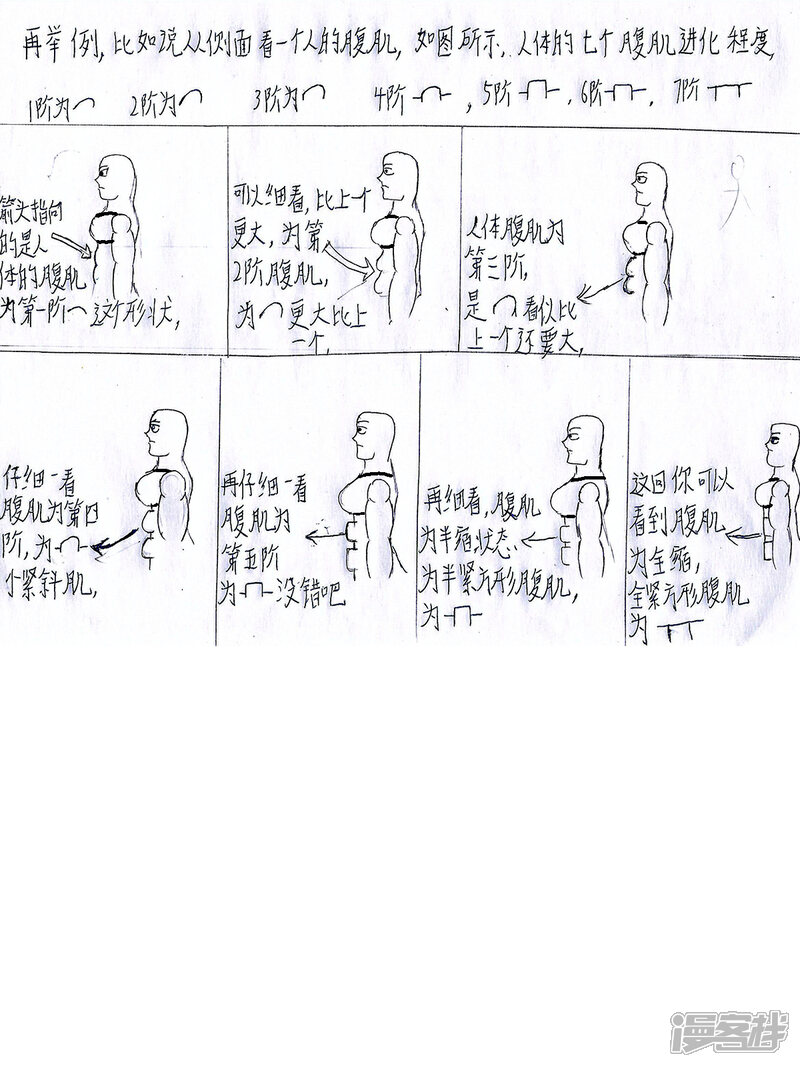 再举例,比如说从侧面看一个人的腹肌,如图所示,人体的七个腹肌进化程度,
1阶为⌒ 2阶为⌒ 3阶为⌒ 4阶 ,5阶 ,6阶 ,7阶
箭头指向
的是人
体的腹肌
为第一阶⌒这个形状,
可以细看,比上一个
更大,为第
2阶腹肌,
为⌒更大比上
一个,
人体腹肌为
第三阶,
是⌒,看似比
上一个还要大,
仔细一看
腹肌为第四
阶,为
小紧斜肌,
再仔细一看
腹肌为
第五阶
为 没错吧
再细看,腹肌
为半缩状态,
为半紧方形腹肌,
为
这回你可以
看到,腹肌
为全缩,
全紧方形腹肌
为
漫客栈